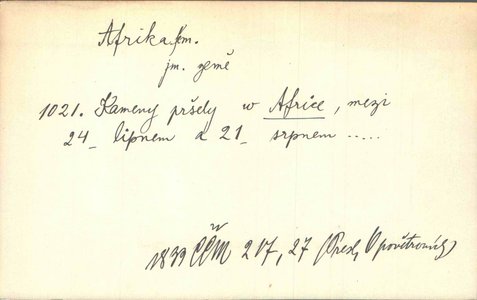 Afrika, fem.
jm. země
1021. Kameny pršely w Africe, mezi
24_ lipnem a 21_ srpnem .....
1839 ČČM 217, 27 (Presl, O povětroních)